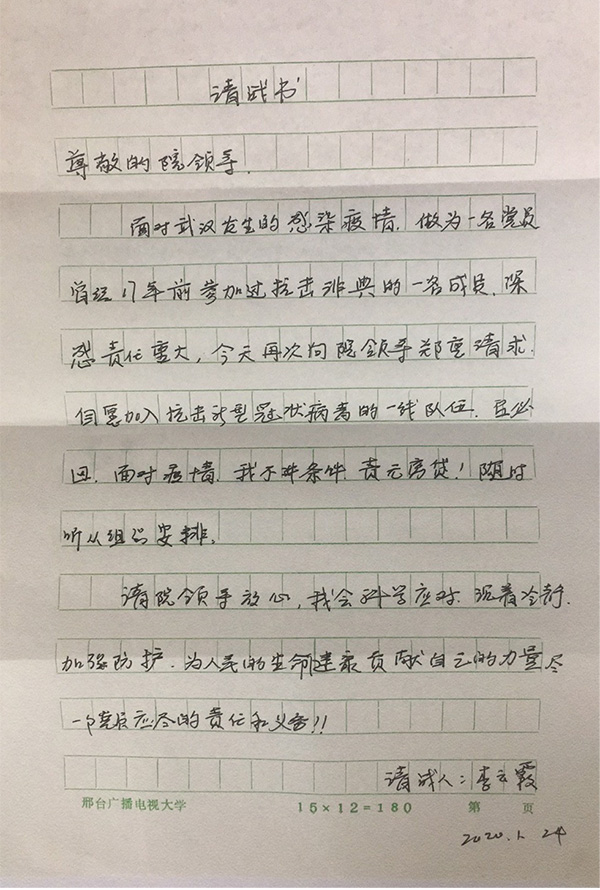 请战书
尊敬的院领导.
面对武汉发生的感染疫情.做为一名党员
曾经17年前参加过抗击非典的一名成员.深
感责任重大,今天再次向院领导郑重请求.
自愿加入抗击新型冠状病毒的一线队伍.
面对疫情.我不讲条件.责无旁贷!随时
听从组织安排.
请院领导放心,我会科学应对.沉着冷静.
加强防护.为人民的生命健康贡献自己的力量尽
一个党员应尽的责任和义务!!
请战人:李云霞
邢台广播电视大学 15×12=180 第 页
2020.1.24